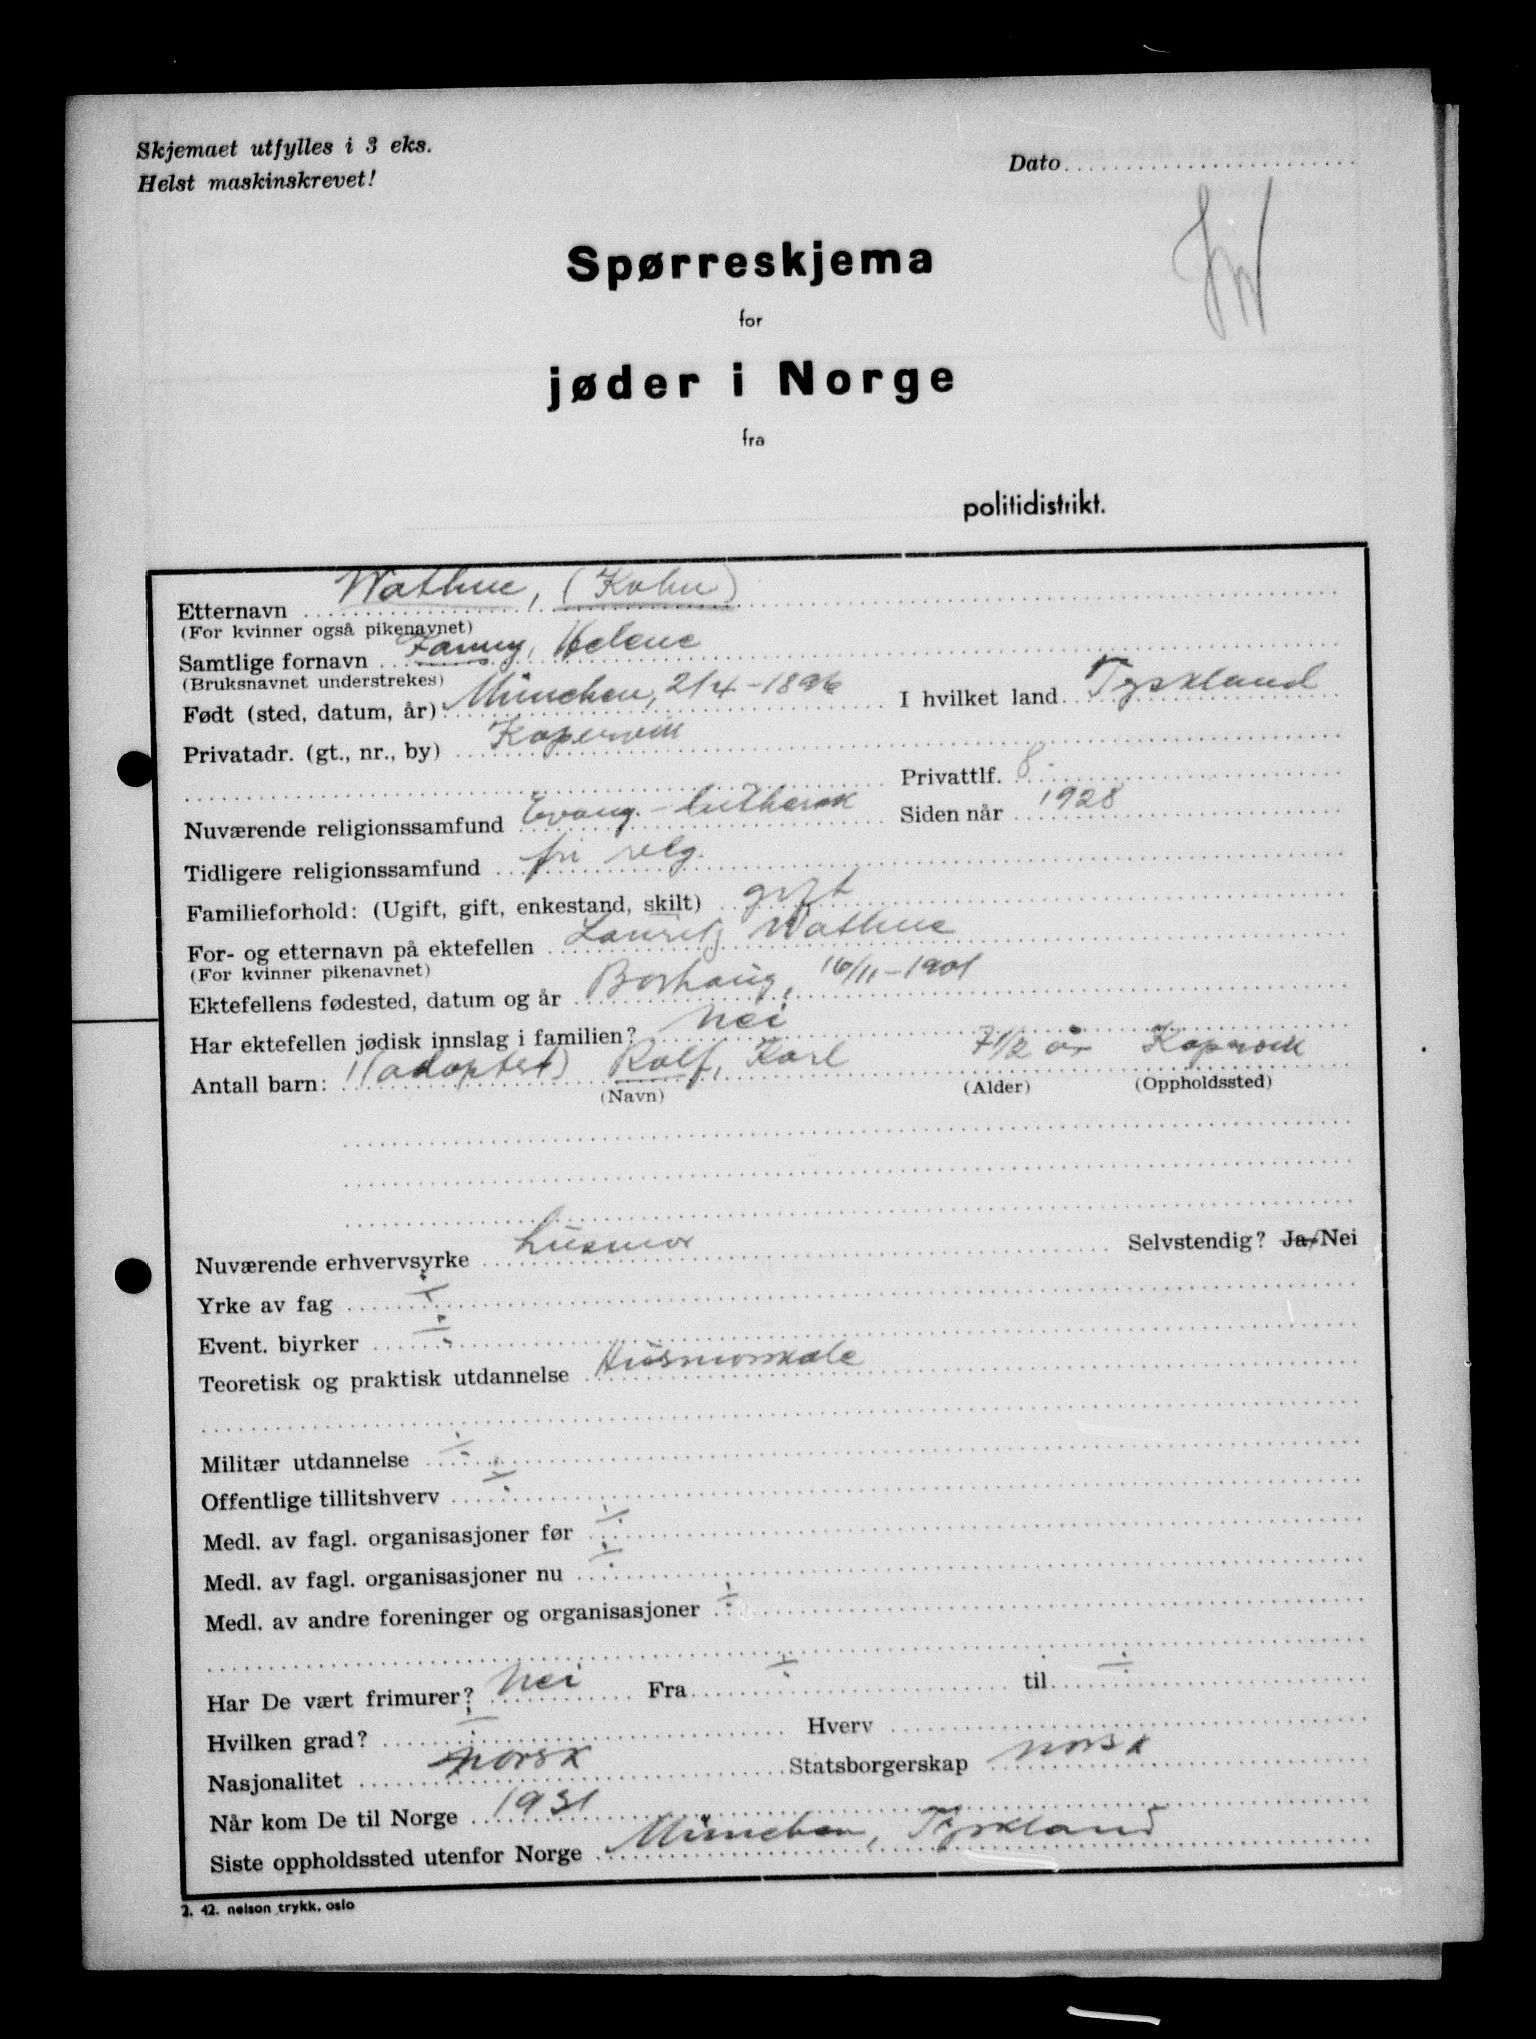 Skjemaet utfylles i 3 eks.
Helst maskinskrevet!
Dato
Spørreskjema
for
jøder i Norge
fra
politidistrikt.
Etternavn Wathne, (Kohn)
(For kvinner også pikenavnet)
Samtlige fornavn Fanny, Helene
(Bruksnavnet understrekes)
Født (sted, datum, år) München, 21/4-1896 I hvilket land Tyskland
Privatadr. (gt., nr., by) Kopervik
Privattlf. 8.
Nuværende religionssamfund Evang.-luthersk Siden når 1928
Tidligere religionssamfund fri relg.
Familieforhold: (Ugift, gift, enkestand, skilt) gift
For- og etternavn på ektefellen Lauritz Wathne
(For kvinner pikenavnet)
Ektefellens fødested, datum og år Borhaug, 16/11-1901
Har ektefellen jødisk innslag i familien? Nei
Antall barn: 1 (adoptert) Rolf, Karl 7 1/2 år Kopervik
(Navn) (Alder) (Oppholdssted)
Nuværende erhvervsyrke husmor Selvstendig? Ja/Nei
Yrke av fag ÷
Event. biyrker ÷
Teoretisk og praktisk utdannelse Husmorskole
Militær utdannelse ÷
Offentlige tillitshverv ÷
Medl. av fagl. organisasjoner før ÷
Medl. av fagl. organisasjoner nu ÷
Medl. av andre foreninger og organisasjoner ÷
Har De vært frimurer? Nei Fra ÷ til ÷
Hvilken grad? ÷ Hverv
Nasjonalitet norsk Statsborgerskap norsk
Når kom De til Norge 1931
Siste oppholdssted utenfor Norge München, Tyskland
2. 42. nelson trykk, oslo